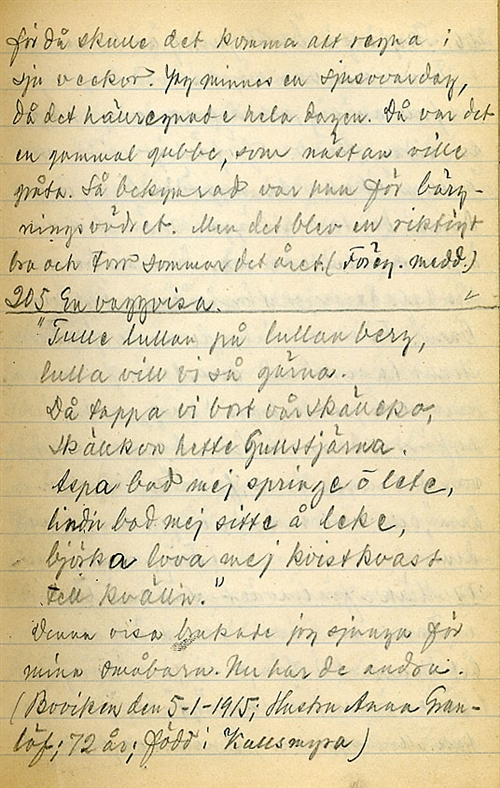 för då skulle det komma att regna i
sju veckor. Jag minnes en sjusovardag,
då det hällregnade hela dagen. Då var det
en gammal gubbe, som nästan ville
gråta. Så bekymrad var han för bärg-
ningsvädret. Men det blev en riktigt
bra och torr sommar det året. (Föreg. medd.)
205 En vaggvisa.
"Tulle lullan på lullan berg,
lulla vill vi så gärna.
Då tappa vi bort vår skällko,
Skällkon hette Gullstjärna.
Aspa bad mej springe å lete,
lindn bad mej sitte å leke,
björka lova mej kvistkvast
till kvälln."
Denna visa brukade jag sjunga för
mina småbarn. Nu har de andra.
(Boviken den 5-1-1915; Hustru Anna Gran-
löf; 72 år; född i Kallsmyra)